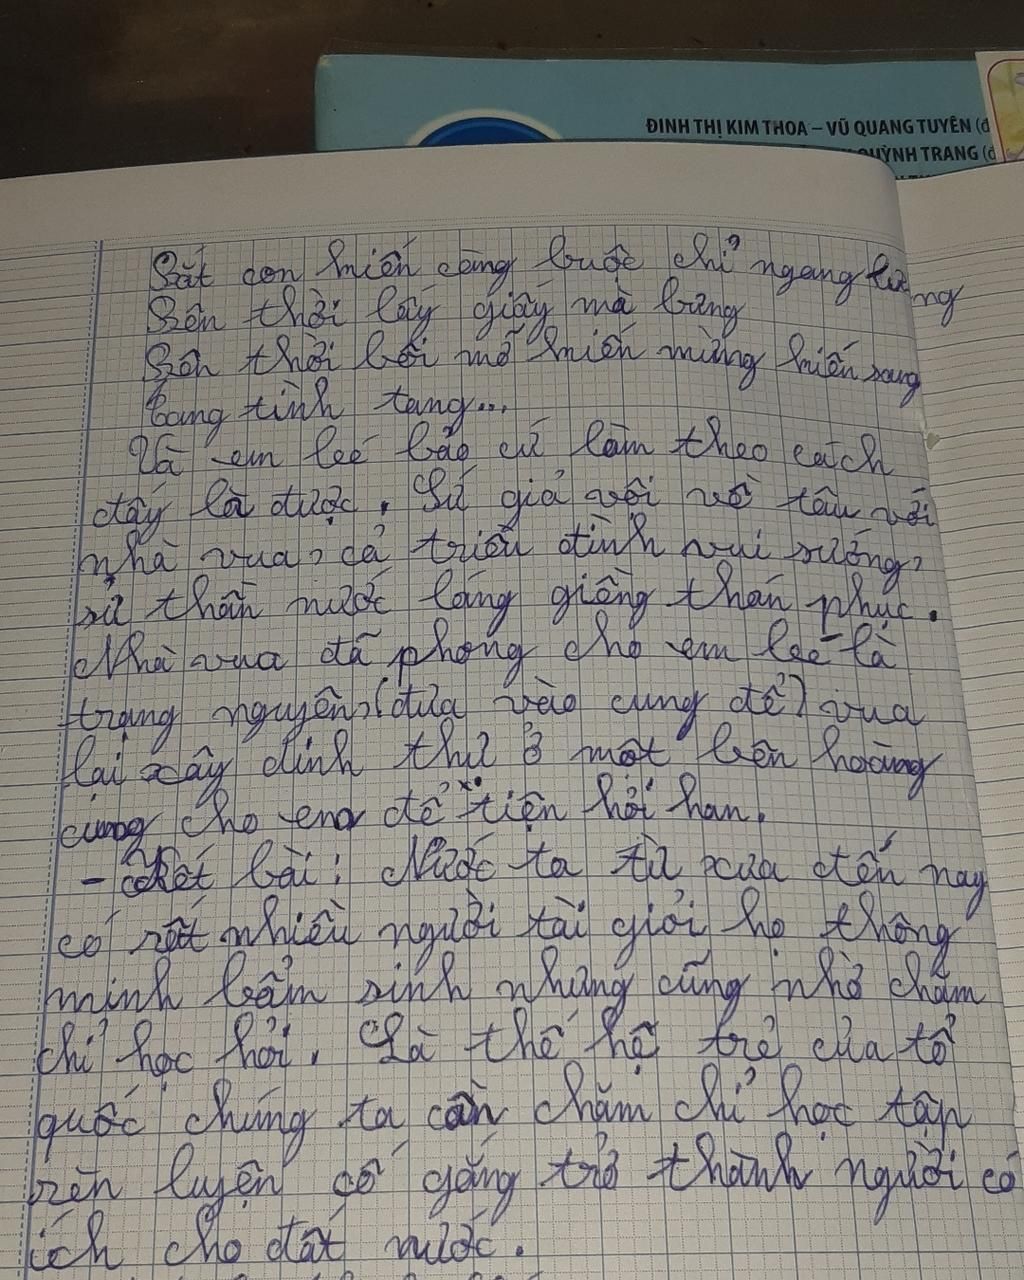 ĐINH THỊ KIM THOA – VŨ QUANG TUYÊN (đ
QUỲNH TRANG (đ
Bắt con kiến càng buộc chỉ ngang lưng
Bên thời lấy giấy mà bưng
Bên thời bôi mỡ kiến mừng kiến sang
tang tình tang...
Và em bé bảo cứ làm theo cách
đấy là được. Sứ giả vội về tâu với
nhà vua, cả triều đình vui sướng,
sứ thần nước láng giềng thán phục.
Nhà vua đã phong cho em bé là
trạng nguyên, (đưa vào cung để) vua
lại xây dinh thự ở một bên hoàng
cung cho em để tiện hỏi han.
- Kết bài: Nước ta từ xưa đến nay
có rất nhiều người tài giỏi họ thông
minh bẩm sinh nhưng cũng nhờ chăm
chỉ học hỏi. Là thế hệ trẻ của tổ
quốc chúng ta cần chăm chỉ học tập
rèn luyện cố gắng trở thành người có
ích cho đất nước.